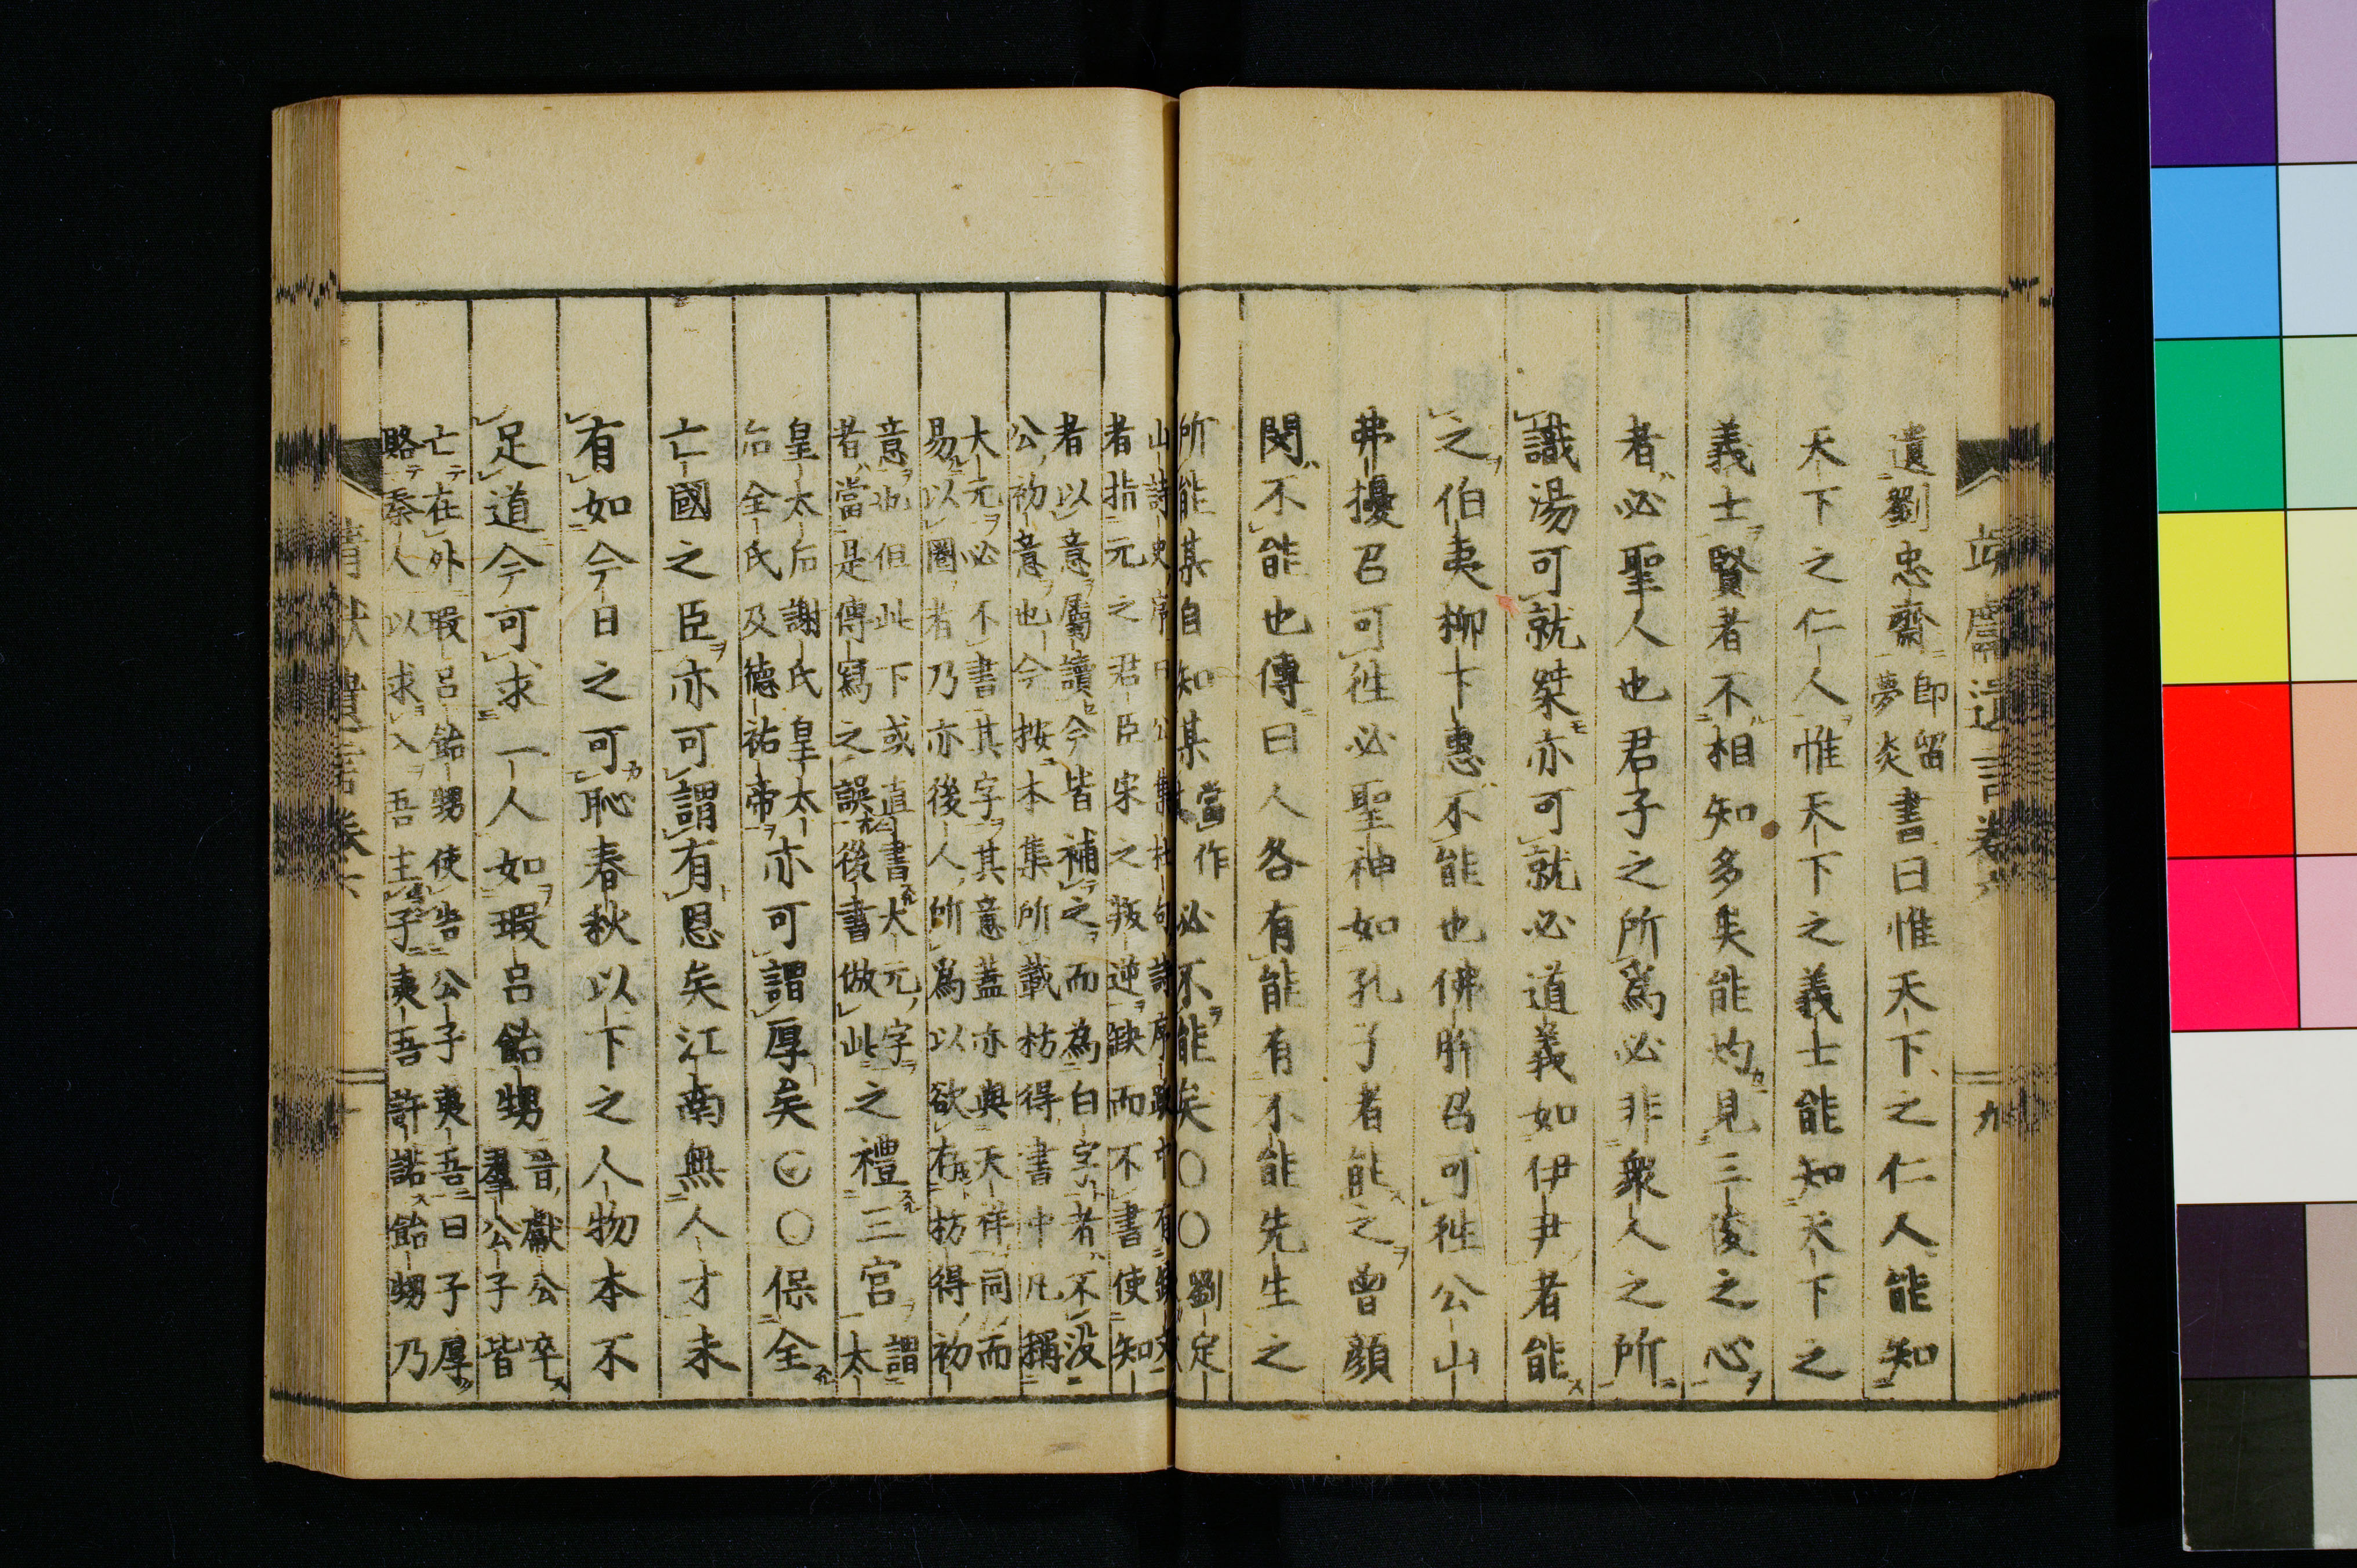 遺劉忠齋即留夢炎書曰惟天下之仁人能知
天下之仁人惟天下之義士能知天下之
義士賢者不相知多矣能灼見三俊之心
者必聖人也君子之所爲必非衆人之所
識湯可就桀亦可就必道義如伊尹者能
之伯夷柳下惠不能也佛肸召可徃公山
弗擾召可徃必聖神如孔子者能之曾顔
閔不能也傳曰人各有能有不能先生之
所能某自知某當作必不能矣〇〇劉定
者指元之君臣宋之叛逆缺而不書使知
者以意屬讀今皆補之而為白字者不没
公初意也今按本集所載枋得書中凡稱
大元必不書其字其意蓋亦與天祥同而
易以圈者乃亦後人所爲以欲存枋得初
意也但此下或直書大元字
者當是傳寫之誤後書倣此之禮三宮謂太
皇太后謝氏皇太
后全氏及德祐帝亦可謂厚矣〇〇保全
亡國之臣亦可謂有恩矣江南無人才未
有如今日之可恥春秋以下之人物本不
足道今可求一人如瑕呂飴甥晉獻公卒羣公子皆
亡在外瑕呂飴甥使告公子夷吾曰子厚
賂秦人以求入吾主子夷吾許諾飴甥乃
九